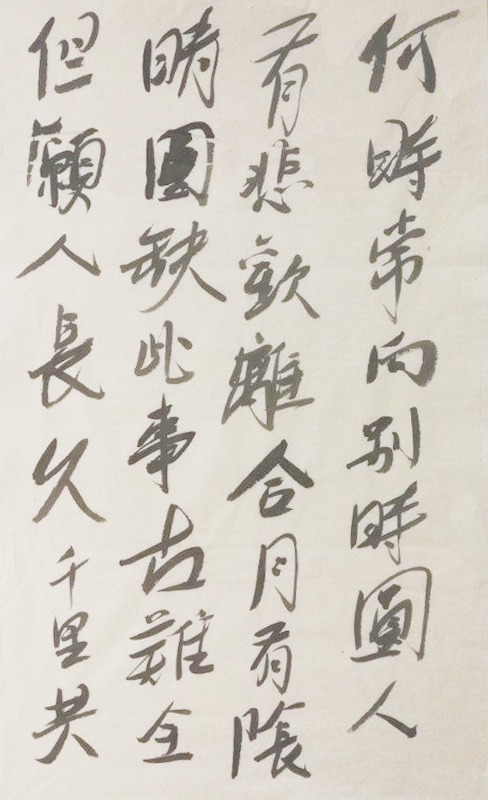 何時常向別時圓人
有悲歡離合月有陰
晴圓缺此事古難全
但願人長久千里共